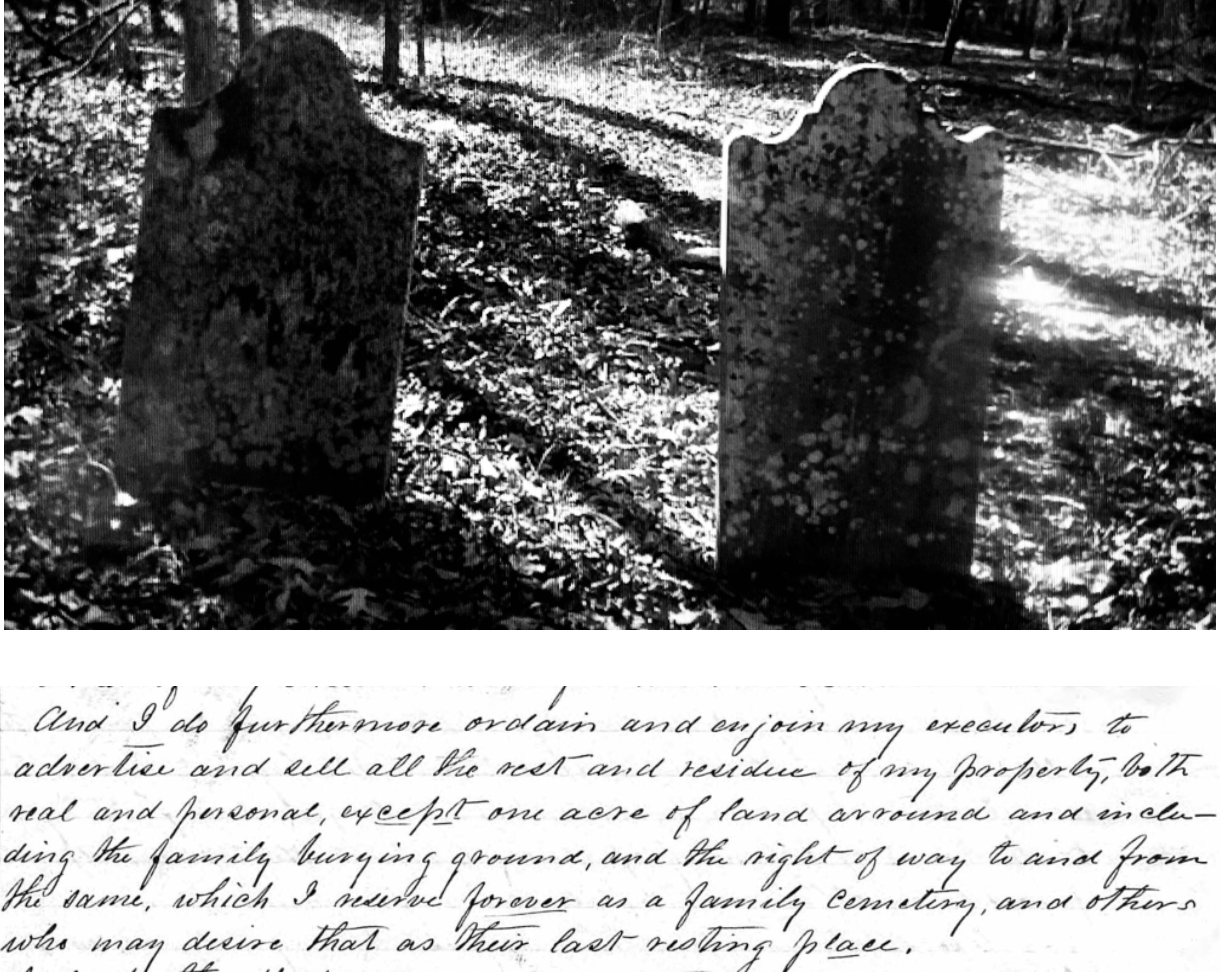 And I do furthermore ordain and enjoin my executors to
advertise and sell all the rest and residue of my property, both
real and personal, except one acre of land arround and inclu-
ding the family burying ground, and the right of way to and from
the same, which I reserve forever as a family Cemetery, and others
who may desire that as their last resting place.